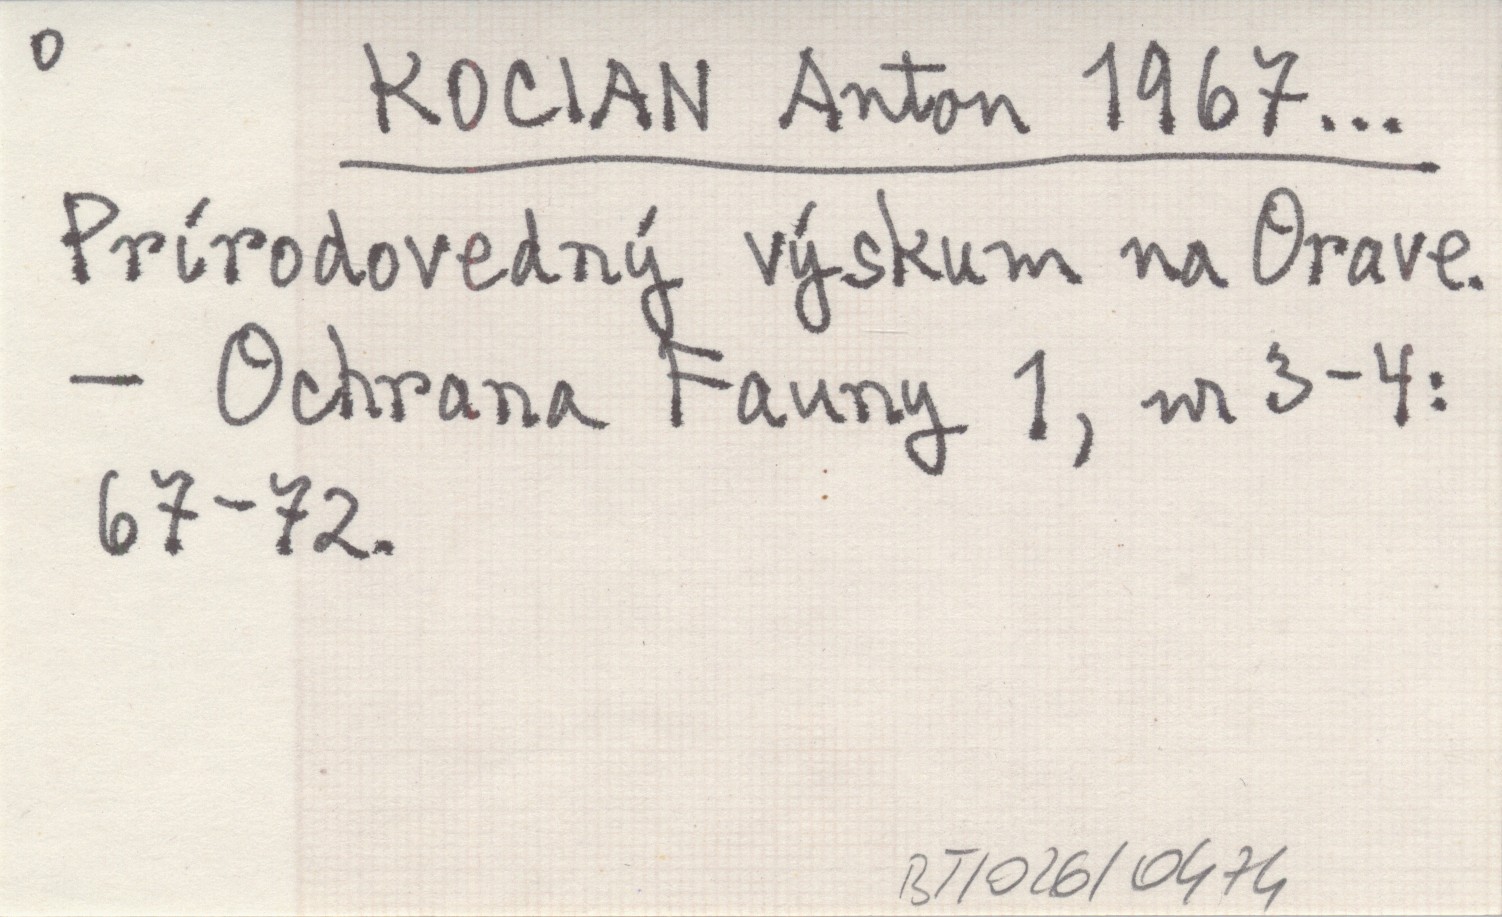 o
KOCIAN Anton 1967...
Prírodovedný výskum na Orave.
— Ochrana Fauny 1, nr 3-4:
67-72.
BT/026/0474